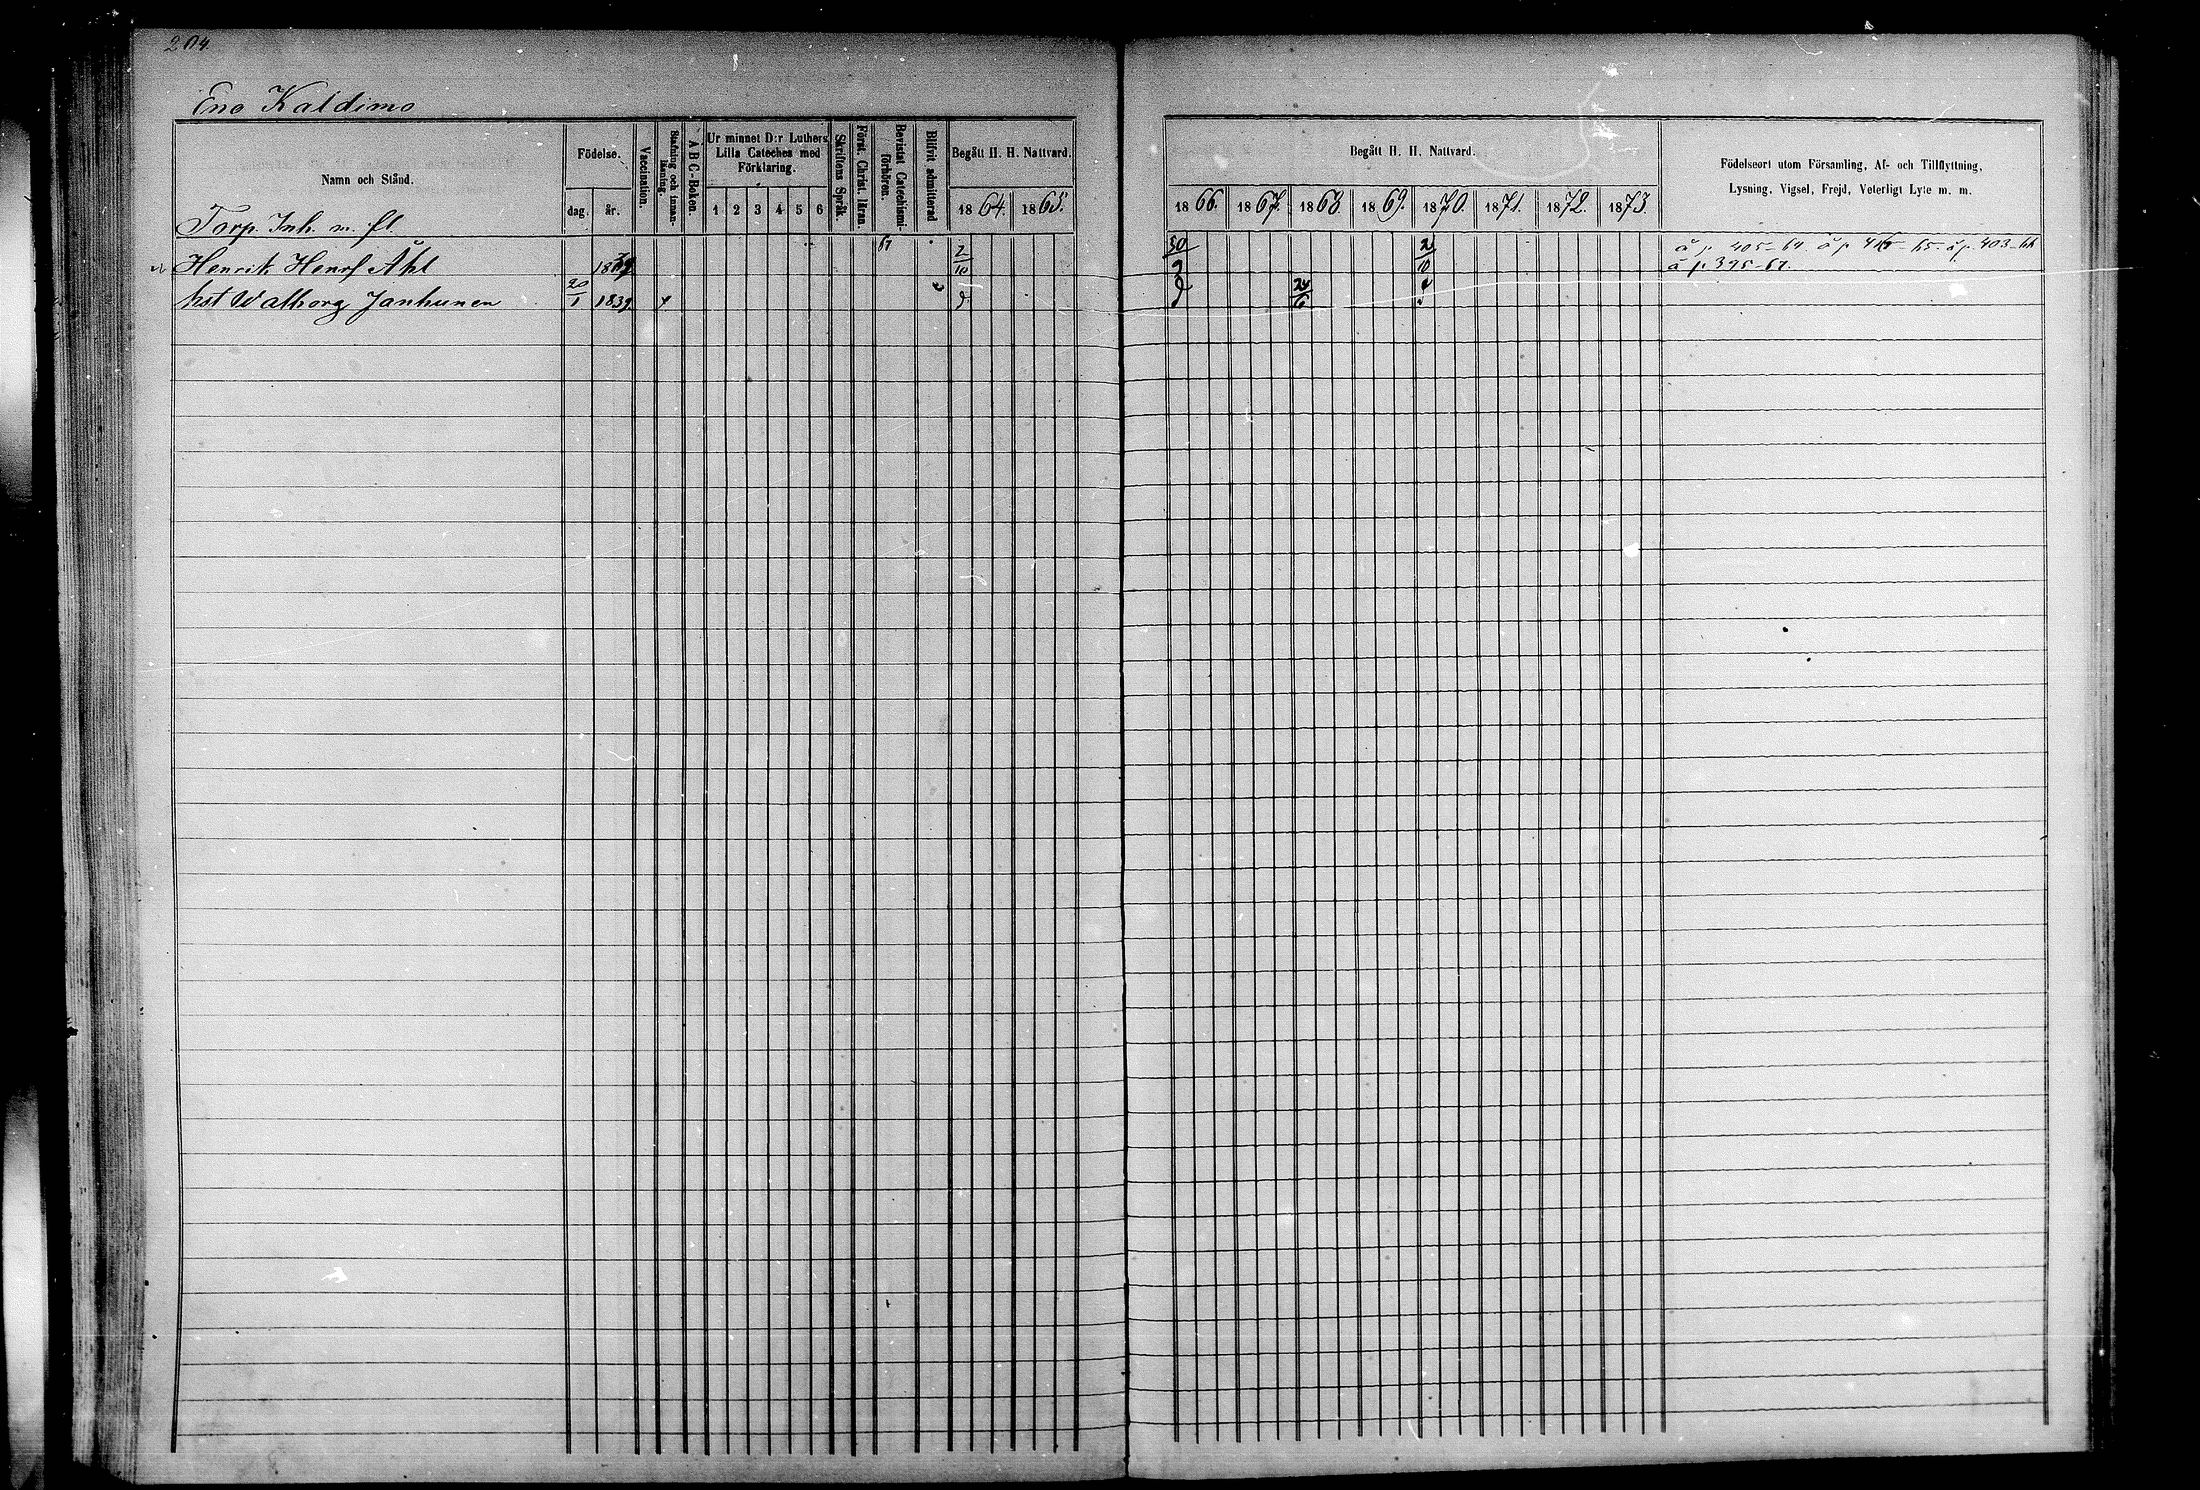 204.
Eno Kaldimo
Namn och Stånd.
Födelse.
dag. år.
Vaccination.
Stafning och innanläsning.
A B C-Boken.
Ur minnet D:r Luthers Lilla Cateches med Förklaring.
1 2 3 4 5 6
Skriftens Språk.
Först. Christ. läran.
Bevistat Catechismiförhören.
Blifvit admitterad
Begått H. H. Nattvard.
1864. 1865.
Begått H. H. Nattvard.
1866. 1867. 1868. 1869. 1870. 1871. 1872. 1873.
Födelseort utom Församling, Af- och Tillflyttning,
Lysning, Vigsel, Frejd, Veterligt Lyte m. m.
Torp. Inh. m. fl.
Henrik Henrs Åhl 2/10 30/9 2/10 å p. 405-64. å p 415-65- å p. 403-66
å p. 395-67.
hst Walborg Janhunen 20/1 1839. 24/6